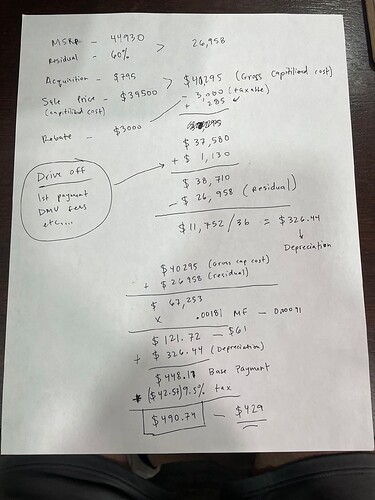 MSRP - 44930 > 26,958
Residual - 60%
Acquisition - $795 > $40295 (Gross Capitilized cost)
Sale Price - $39500 - 3,000 (taxable)
(capitilized cost) + 285 ✓
Rebate - $3000
$ 37,580
+ $ 1,130
Drive off
1st payment
DMV fees
etc....
$ 38,710
- $ 26,958 (Residual)
$11,752 / 36 = $326.44
↓
Depreciation
$40295 (Gross cap cost)
+ $26958 (residual)
$ 67,253
x .00181 MF - 0.00091
$ 121.72 - $61
+ $ 326.44 (Depreciation)
$448.17 Base Payment
($42.57) 9.5% tax
$490.74 - $429